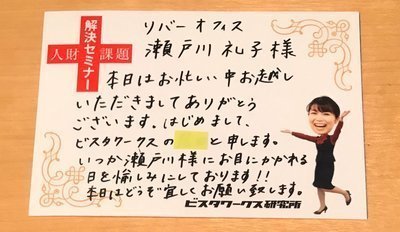 解決セミナー
人財 課題
リバーオフィス
瀬戸川 礼子様
本日はお忙しい中お越し
いただきましてありがとう
ございます。はじめまして、
ビスタワークスの と申します。
いつか瀬戸川様にお目にかかれる
日を愉しみにしております!!
本日はどうぞ宜しくお願い致します。
ビスタワークス研究所